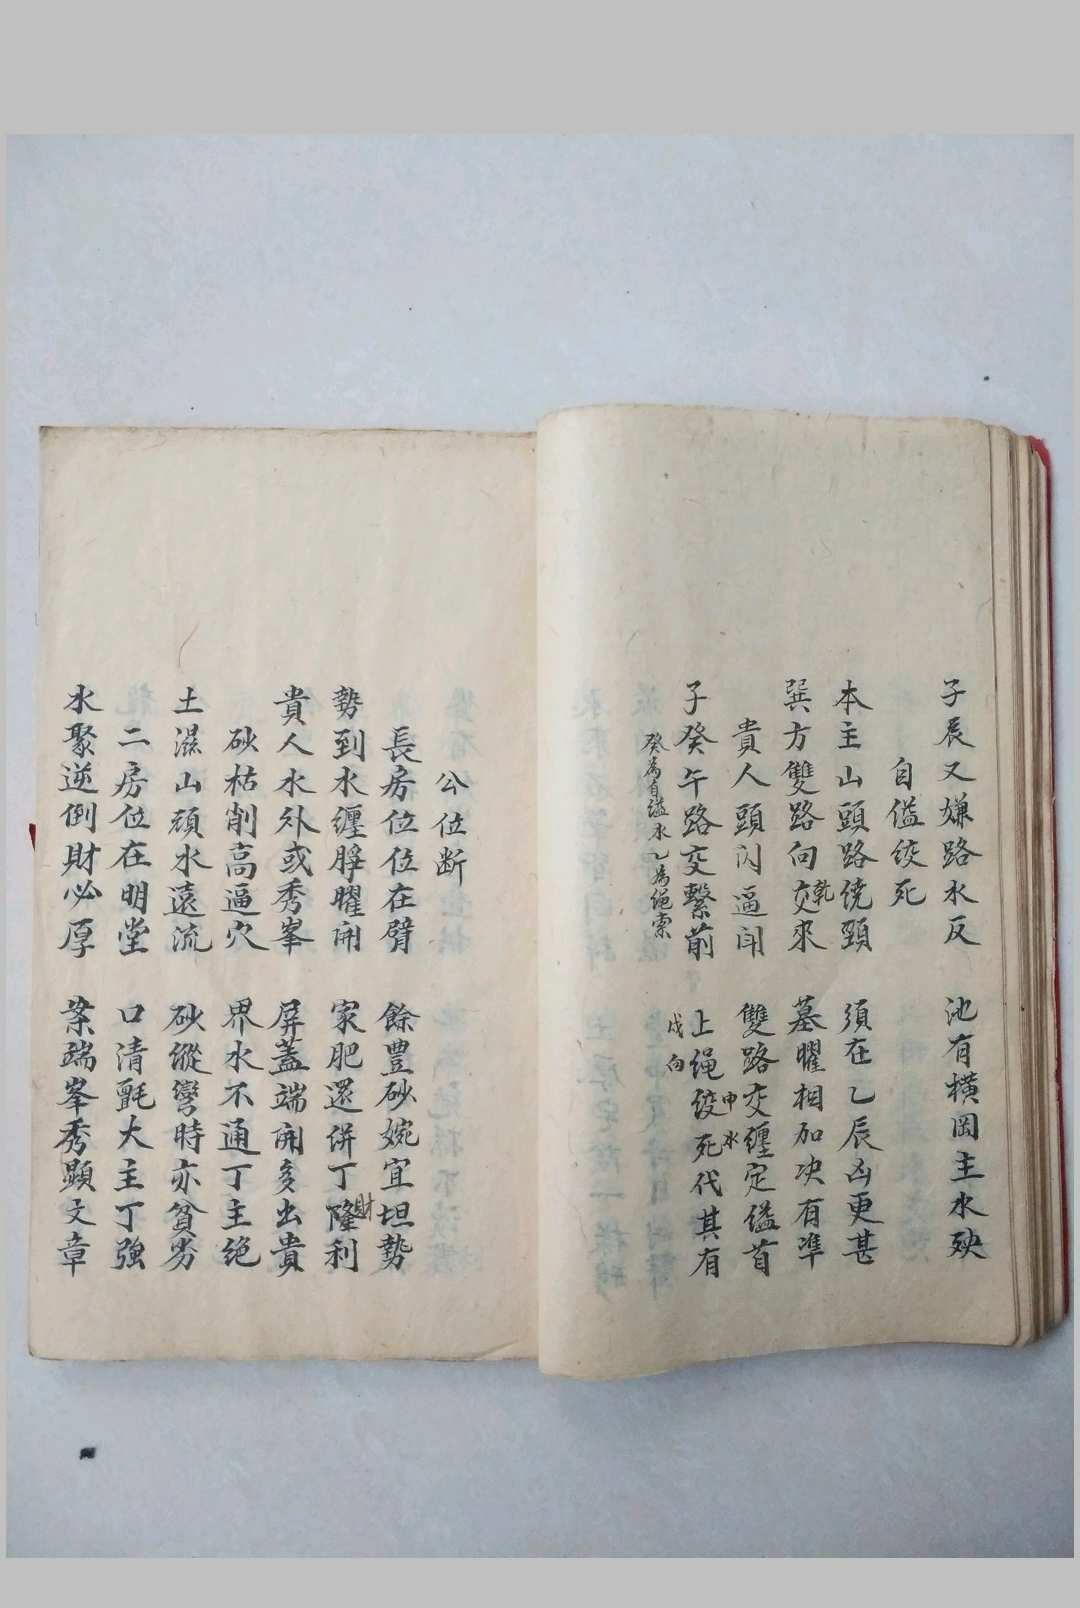 子辰又嫌路水反　池有橫岡主水殃
自縊絞死
本主山頭路繞頸　須在乙辰凶更甚
巽方雙路向乾交來　墓曜相加决有准
貴人頭閃逼闬　雙路交纏定縊首
申水
子癸午路交繫前　上绳绞死代其有
戌向
癸為自縊水乙為绳索
公位断
長房位位在臂　餘豊砂婉宜坦勢
勢到水纏脝曜開　家肥還併丁財隆利
貴人水外或秀峯　屏蓋端開多出貴
砂枯削高逼穴　界水不通丁主绝
土濕山頑水遠流　砂縱彎時亦貧劣
二房位在明堂　口清氈大主丁強
水聚逆倒財必厚　案端峯秀顯文章